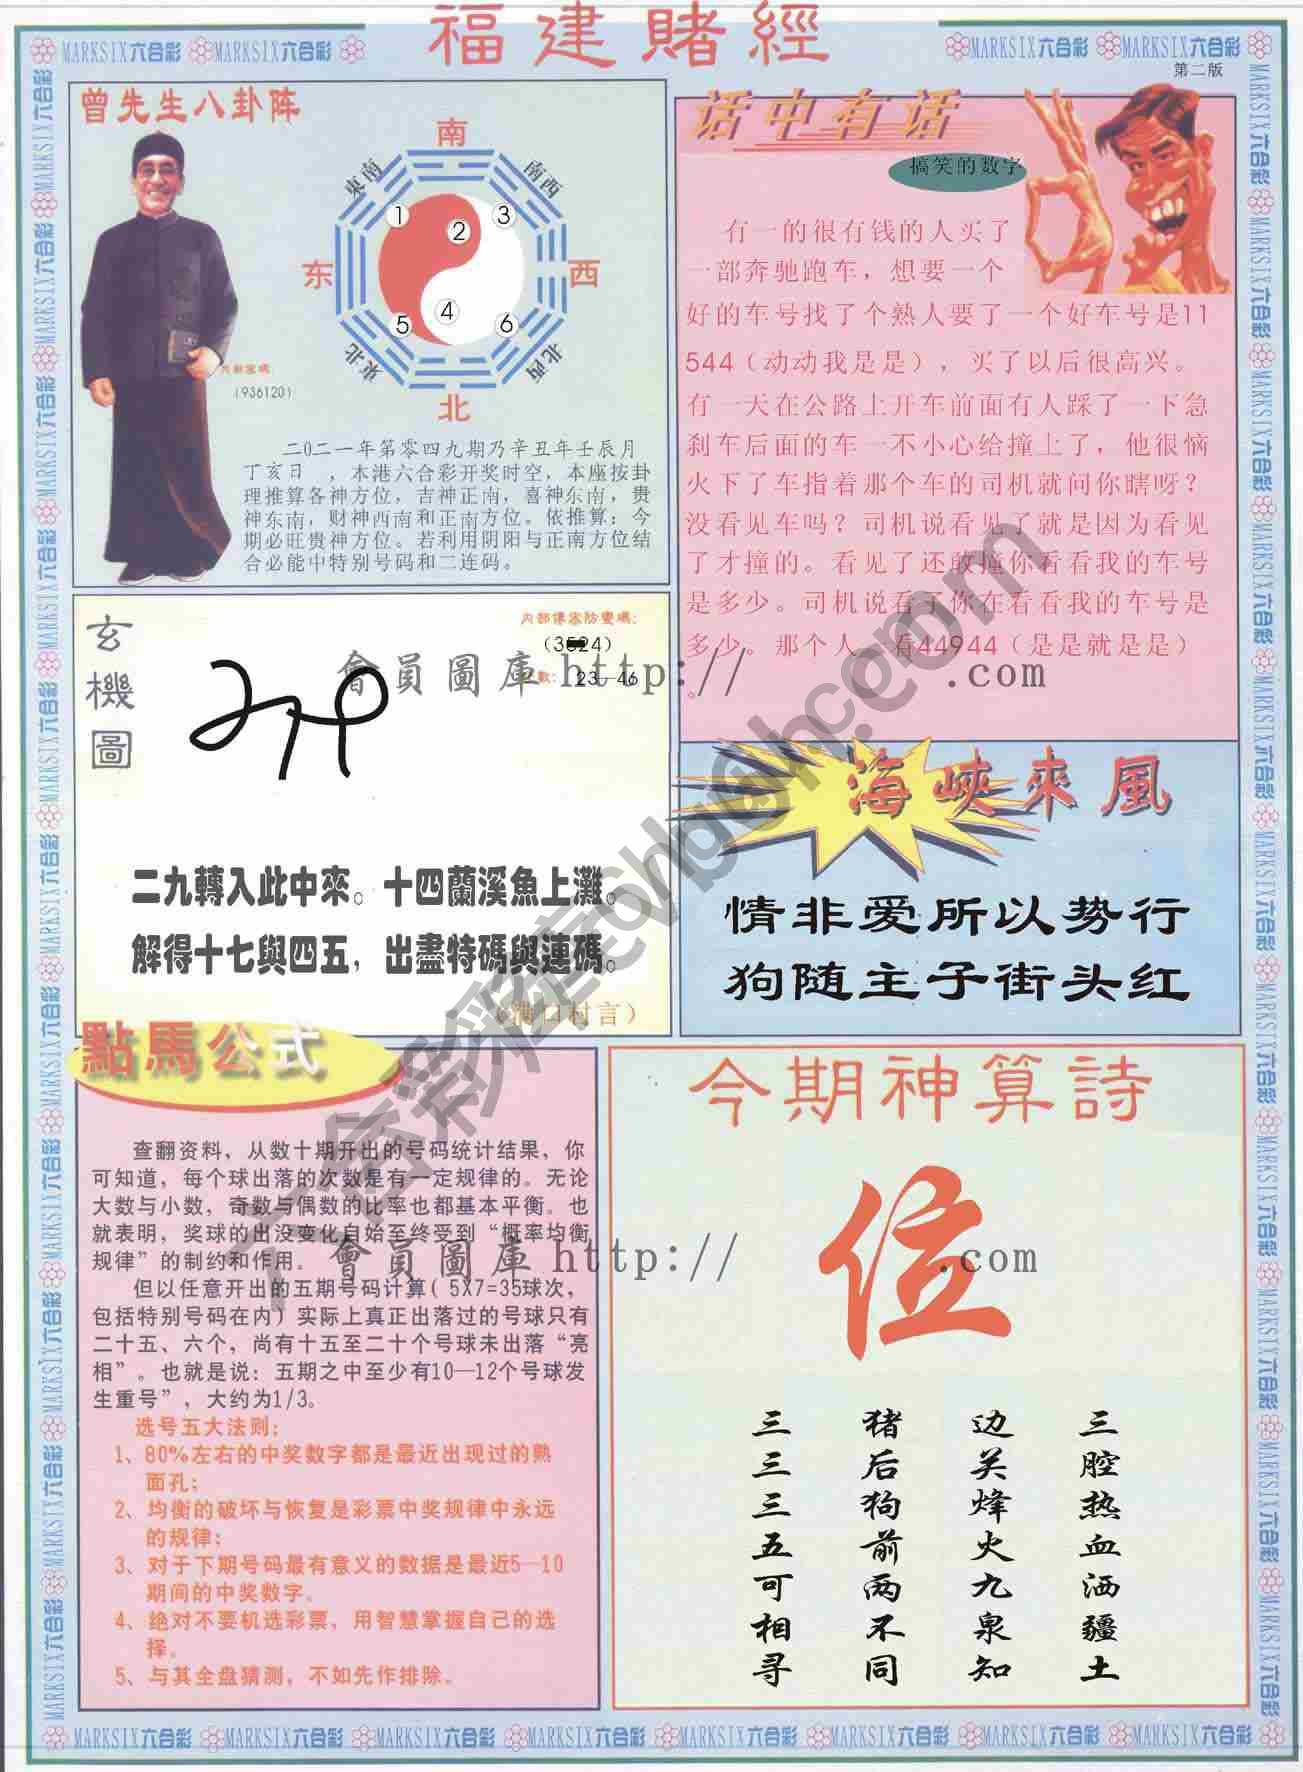 福建賭經
MARKSIX六合彩 MARKSIX六合彩
MARKSIX六合彩 MARKSIX六合彩
第二版
曾先生八卦阵
南
東南
南西
1
2
3
东
西
4
5
6
東北
北西
北
(936120)
二O二一年第零四九期乃辛丑年壬辰月
丁亥日 ，本港六合彩开奖时空，本座按卦
理推算各神方位，吉神正南，喜神东南，贵
神东南，财神西南和正南方位。依推算：今
期必旺贵神方位。若利用阴阳与正南方位结
合必能中特别号码和二连码。
话中有话
搞笑的数字
有一的很有钱的人买了
一部奔驰跑车，想要一个
好的车号找了个熟人要了一个好车号是11
544（动动我是是），买了以后很高兴。
有一天在公路上开车前面有人踩了一下急
刹车后面的车一不小心给撞上了，他很恼
火下了车指着那个车的司机就问你瞎呀？
没看见车吗？司机说看见了就是因为看见
了才撞的。看见了还敢撞你看看我的车号
是多少。司机说看了你在看看我的车号是
多少。那个人一看44944（是是就是是）
。
玄機圖
23-46
會員圖庫 http:// .com
二九轉入此中來。十四蘭溪魚上灘。
解得十七與四五，出盡特碼與連碼。
海峽來風
情非爱所以势行
狗随主子街头红
點馬公式
查翻资料，从数十期开出的号码统计结果，你
可知道，每个球出落的次数是有一定规律的。无论
大数与小数，奇数与偶数的比率也都基本平衡。也
就表明，奖球的出没变化自始至终受到“概率均衡
规律”的制约和作用。
但以任意开出的五期号码计算( 5X7=35球次，
包括特别号码在内）实际上真正出落过的号球只有
二十五、六个，尚有十五至二十个号球未出落“亮
相”。也就是说：五期之中至少有10—12个号球发
生重号”，大约为1/3。
选号五大法则：
1、80%左右的中奖数字都是最近出现过的熟
面孔；
2、均衡的破坏与恢复是彩票中奖规律中永远
的规律；
3、对于下期号码最有意义的数据是最近5—10
期间的中奖数字。
4、绝对不要机选彩票，用智慧掌握自己的选
择。
5、与其全盘猜测，不如先作排除。
會員圖庫 http:// .com
今期神算詩
位
三腔热血洒疆土
边关烽火九泉知
猪后狗前两不同
三三三五可相寻
MARKSIX六合彩 MARKSIX六合彩 MARKSIX六合彩 MARKSIX六合彩 MARKSIX六合彩 MARKSIX六合彩 MARKSIX六合彩 MARKSIX六合彩